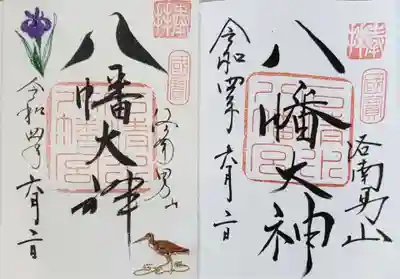 奉拝
國寳
八幡大神
洛南男山
令和四年六月二日
奉拝
國寳
八幡大神
洛南男山
令和四年六月二日